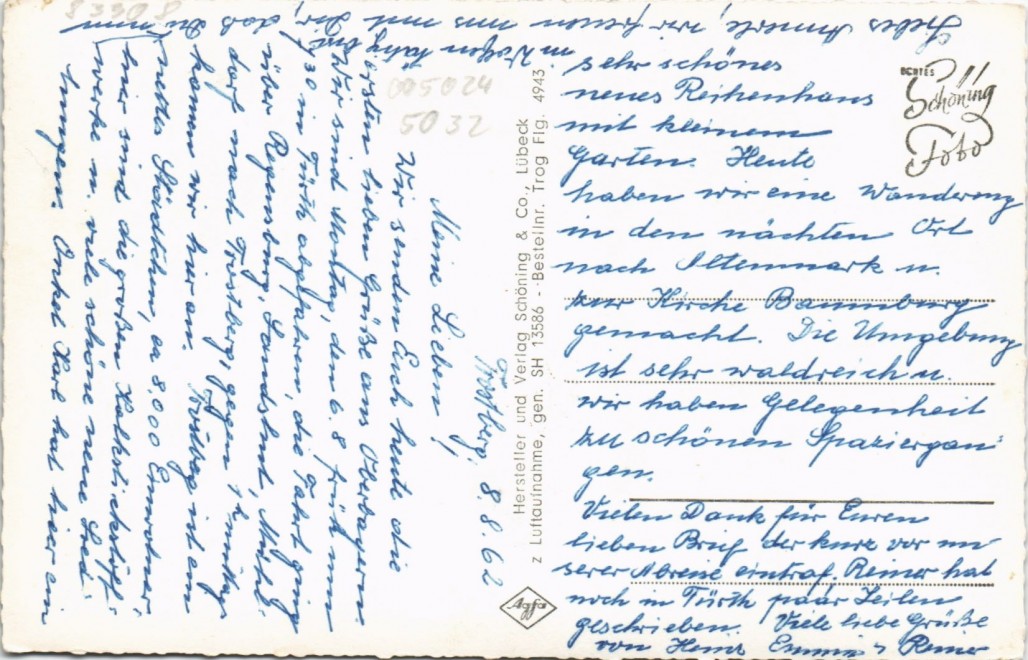 Trostberg, 8.8.62
Meine Lieben!
Wir senden Euch heute die
ersten lieben Grüße aus Oberbayern.
Wir sind Montag, den 6.8 früh um
7³⁰ in Fürth abgefahren, die Fahrt ging
über Regensburg, Landshut, Mühl-
dorf nach Trostberg, gegen 1ʰ mittags
kamen wir hier an. Trostberg ist ein
nettes Städtchen, ca 8.000 Einwohner,
hier sind die großen Kalkstickstoff-
werke u. viele schöne neue Sied-
lungen. Onkel Karl hat hier ein
sehr schönes
neues Reihenhaus
mit kleinem
Garten. Heute
haben wir eine Wanderung
in den nächten Ort
nach Altenmark u.
zur Kirche Baumburg
gemacht. Die Umgebung
ist sehr waldreich u.
wir haben Gelegenheit
zu schönen Spaziergän-
gen.
Vielen Dank für Euren
lieben Brief der kurz vor un-
serer Abreise eintraf. Reiner hat
noch in Fürth paar Zeilen
geschrieben. Viele liebe Grüße
von Heinz Emmi u Reiner
Liebes Annerle, wir freuen uns mit Dir, daß Du nun
im Wolfen
83308
005024
5032
Hersteller und Verlag Schöning & Co., Lübeck
z Luftaufnahme, gen. SH 13586 - Bestellnr. Trog Flg. 4943
Agfa
ECHTES
Schöning
Foto